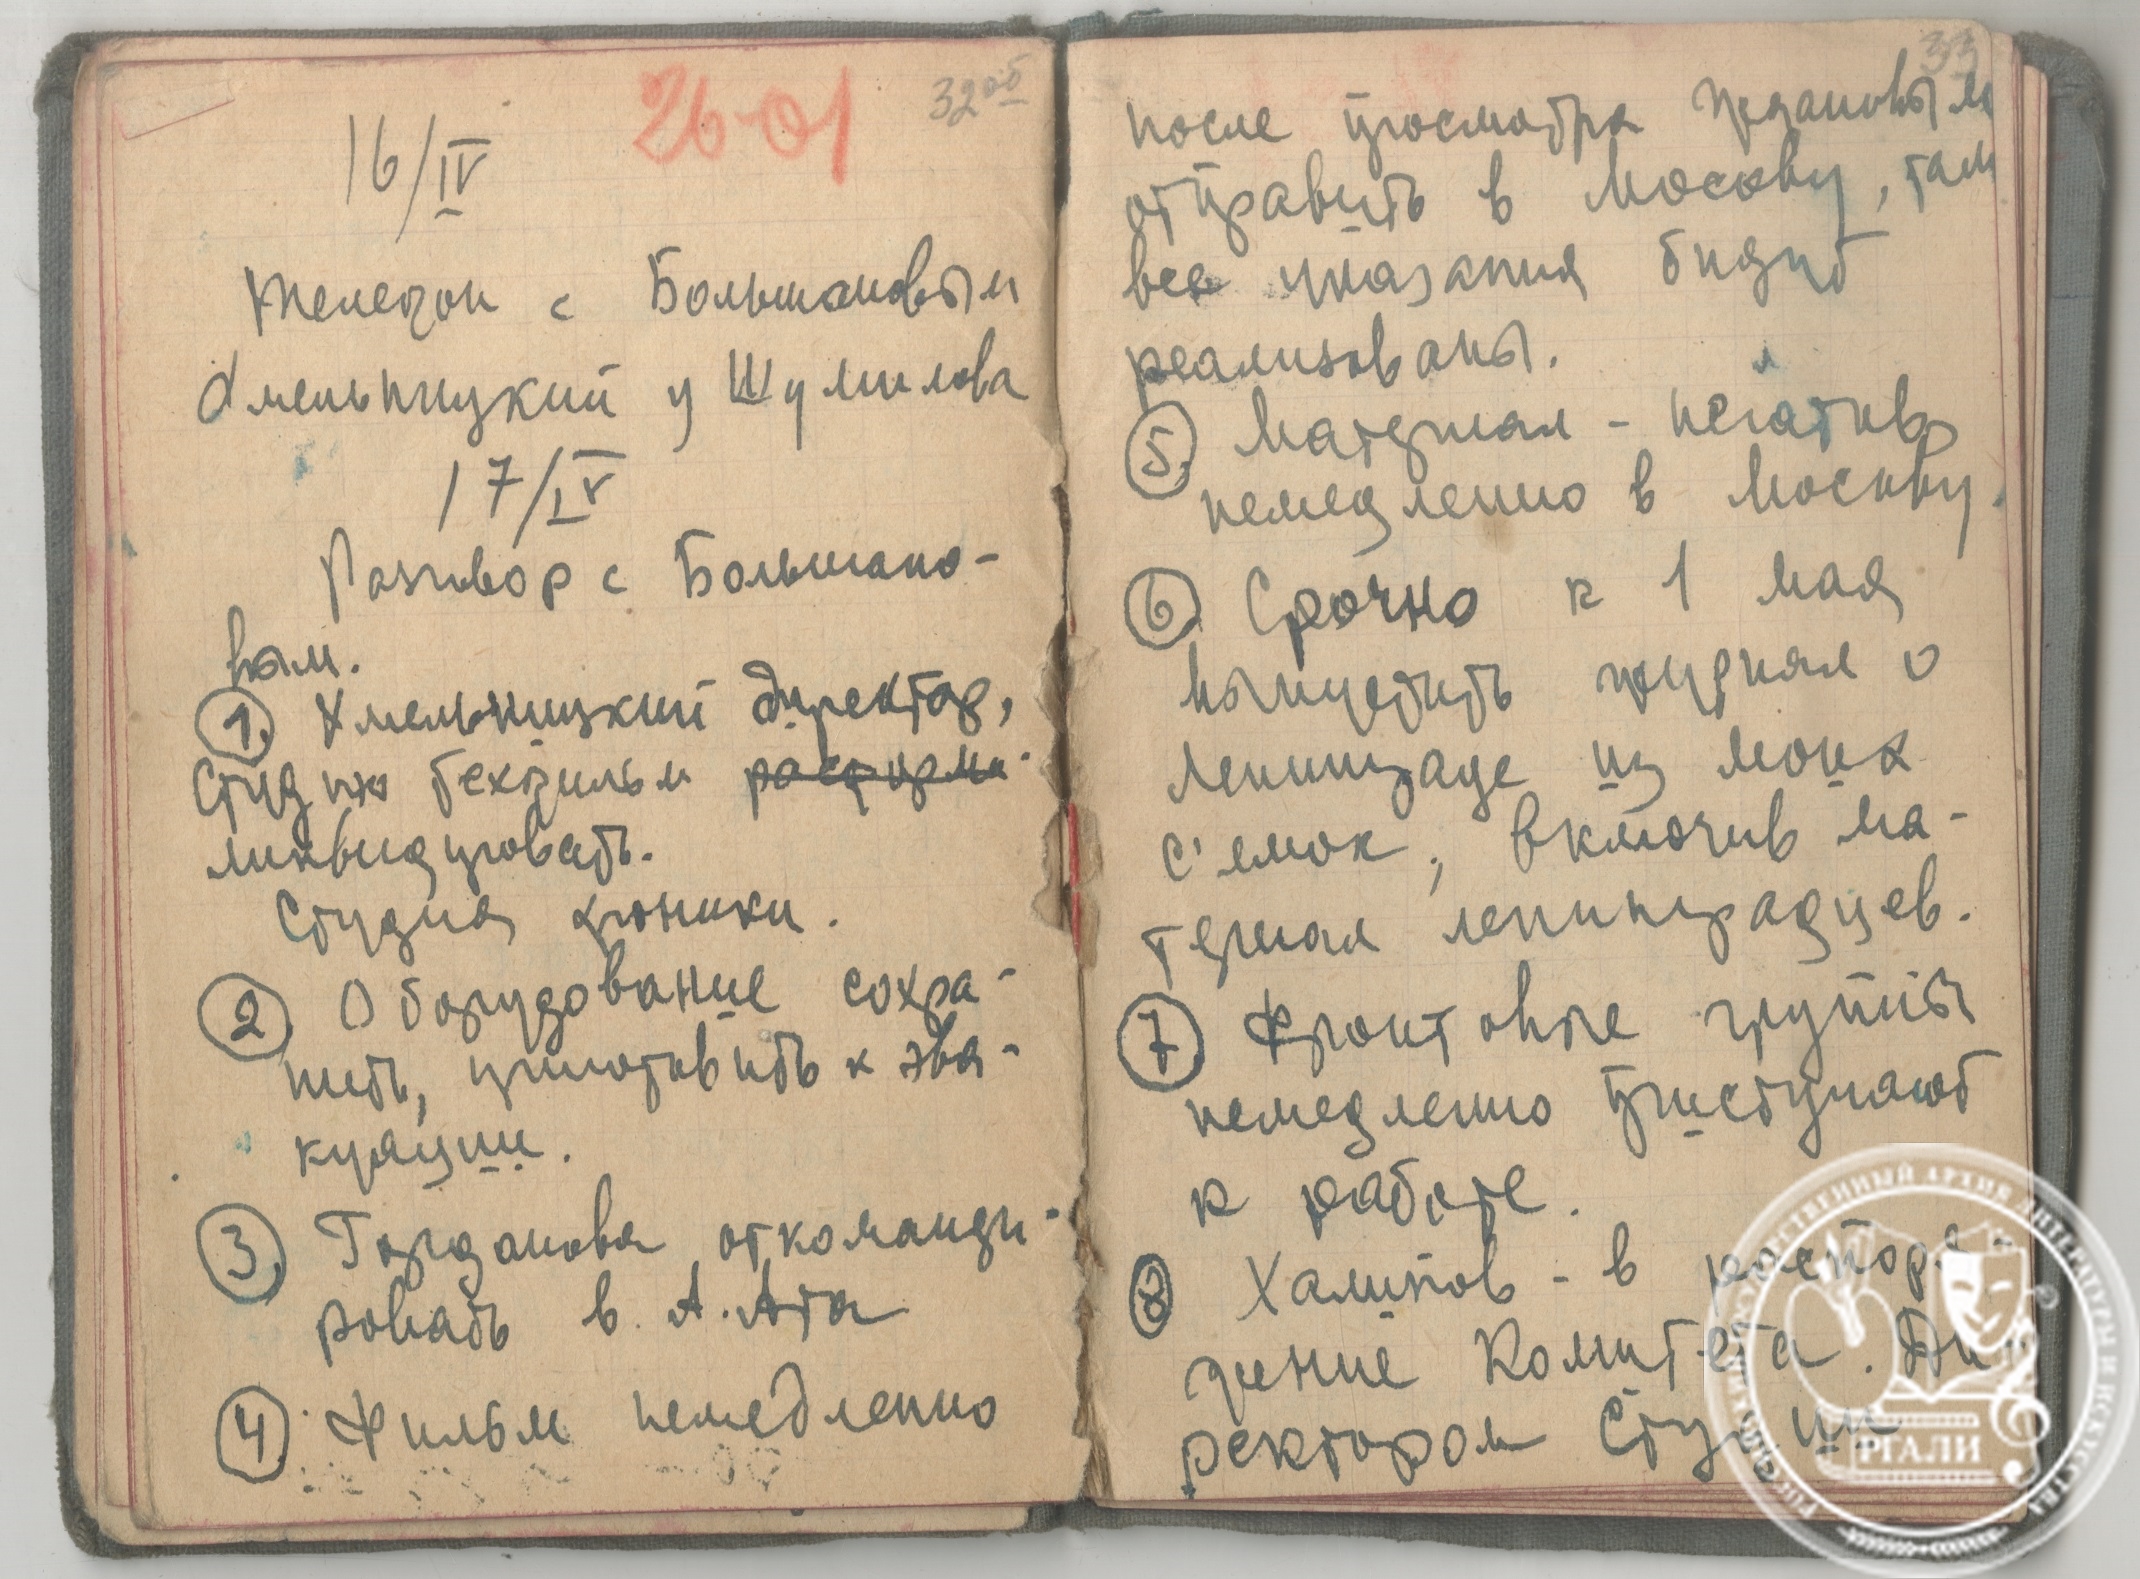 26-01
32об
16/IV
Телефон с Большаковым
Хмельницкий у Шумилова
17/IV
Разговор с Большако-
вым.
1. Хмельницкий директор,
Студию техфильм расформи-
ликвидировать.
Студия хроники.
2. Оборудование сохра-
нить, приготовить к эва-
куации.
3. Горданова откоманди-
ровать в А.Ата
4. Фильм немедленно
33
после просмотра Ждановым
отправить в Москву, там
все указания будут
реализованы.
5. Материал - негатив
немедленно в Москву.
6. Срочно к 1 мая
выпустить журнал о
Ленинграде из моих
с'емок, включив ма-
териал ленинградцев.
7. Фронтовые группы
немедленно приступают
к работе.
8. Халипов - в распоря-
жение Комитета. Ди-
ректором Студии
РГАЛИ